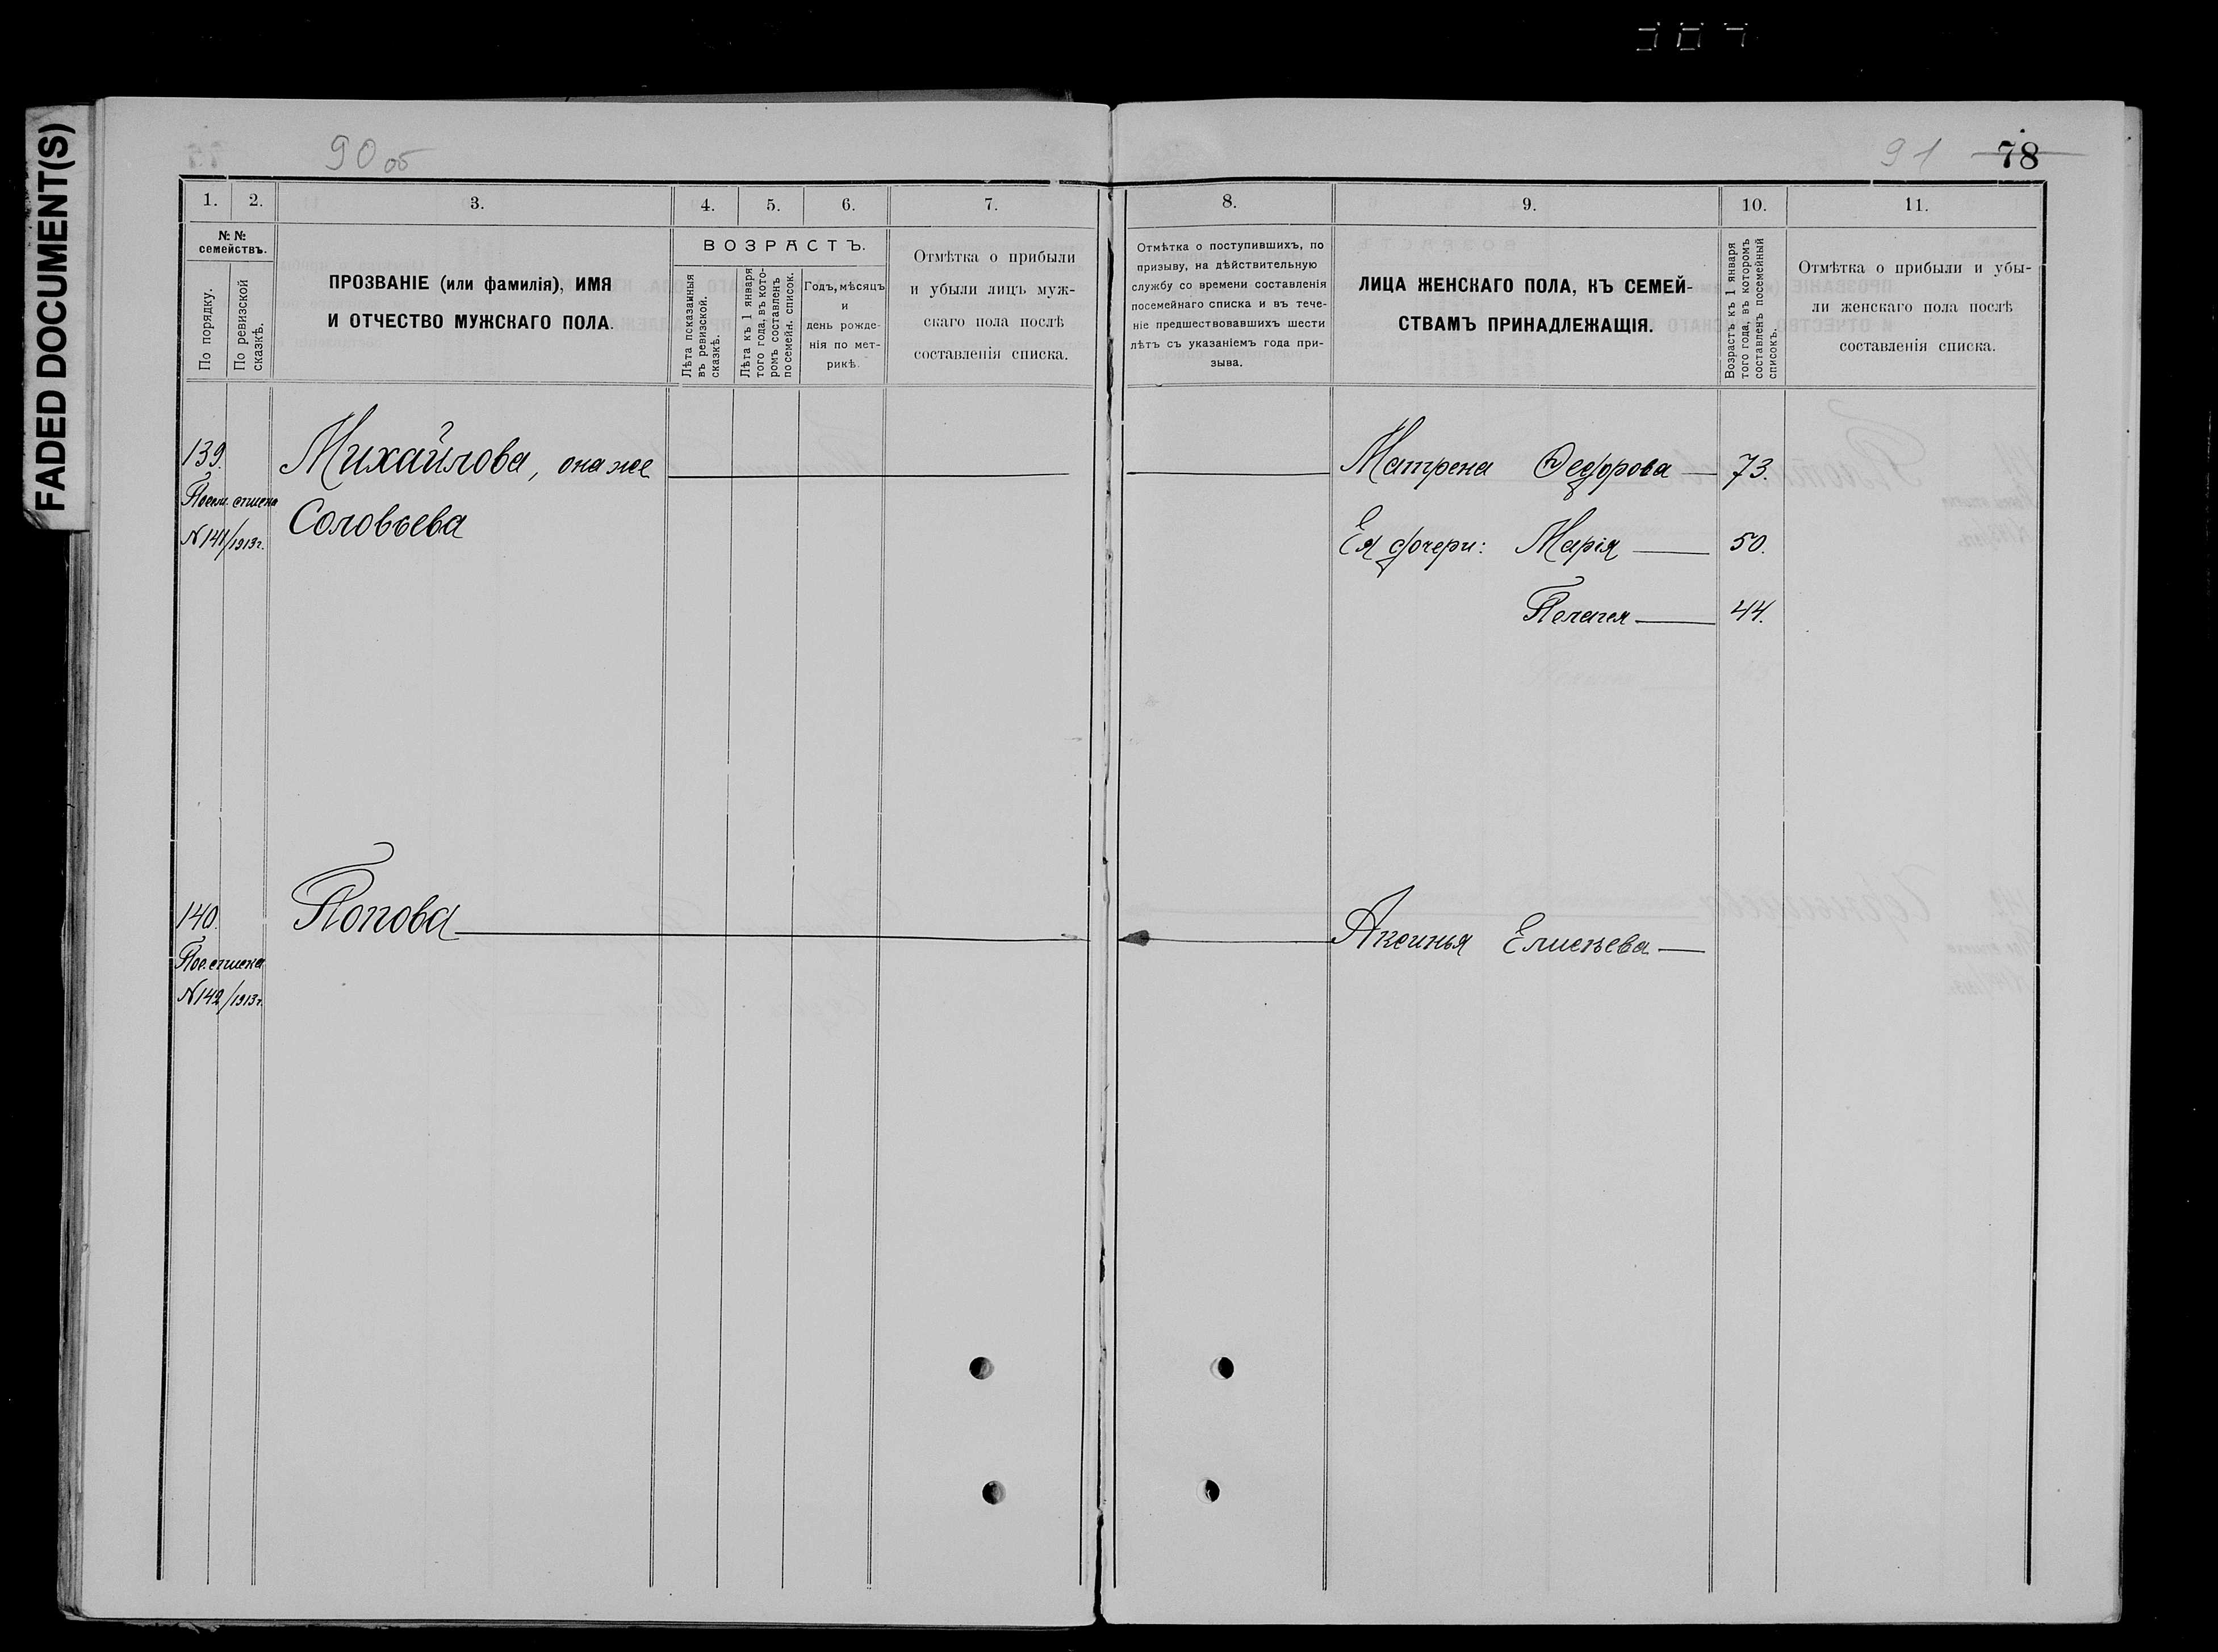 FADED DOCUMENT(S)
90 об
91 78
1. 2. 3. 4. 5. 6. 7.
№№ семействъ.
По порядку.
По ревизской сказкѣ.
ПРОЗВАНІЕ (или фамилія), ИМЯ
И ОТЧЕСТВО МУЖСКАГО ПОЛА.
ВОЗРАСТЪ.
Лѣта показанныя
въ ревизской.
сказкѣ.
Лѣта къ 1 января
того года, въ кото-
ромъ составленъ
посемейн. список.
Годъ, мѣсяцъ
и
день рожде-
нія по мет-
рикѣ.
Отмѣтка о прибыли
и убыли лицъ муж-
скаго пола послѣ
составленія списка.
8. 9. 10. 11.
Отмѣтка о поступившихъ, по
призыву, на дѣйствительную
службу со времени составленія
посемейнаго списка и въ тече-
ніе предшествовавшихъ шести
лѣтъ съ указаніемъ года при-
зыва.
ЛИЦА ЖЕНСКАГО ПОЛА, КЪ СЕМЕЙ-
СТВАМЪ ПРИНАДЛЕЖАЩІЯ.
Возрастъ къ 1 января
того года, въ которомъ
составленъ посемейный
списокъ.
Отмѣтка о прибыли и убы-
ли женскаго пола послѣ
составленія списка.
139. Михайлова, она же
Посем. списка
N 141/1913 г.
Соловьева
Матрена Федорова 73.
Ея дочери: Марія 50.
Пелагея 44.
140. Попова
Пос. списка
N 142/1913 г.
Аксинья Елисѣева